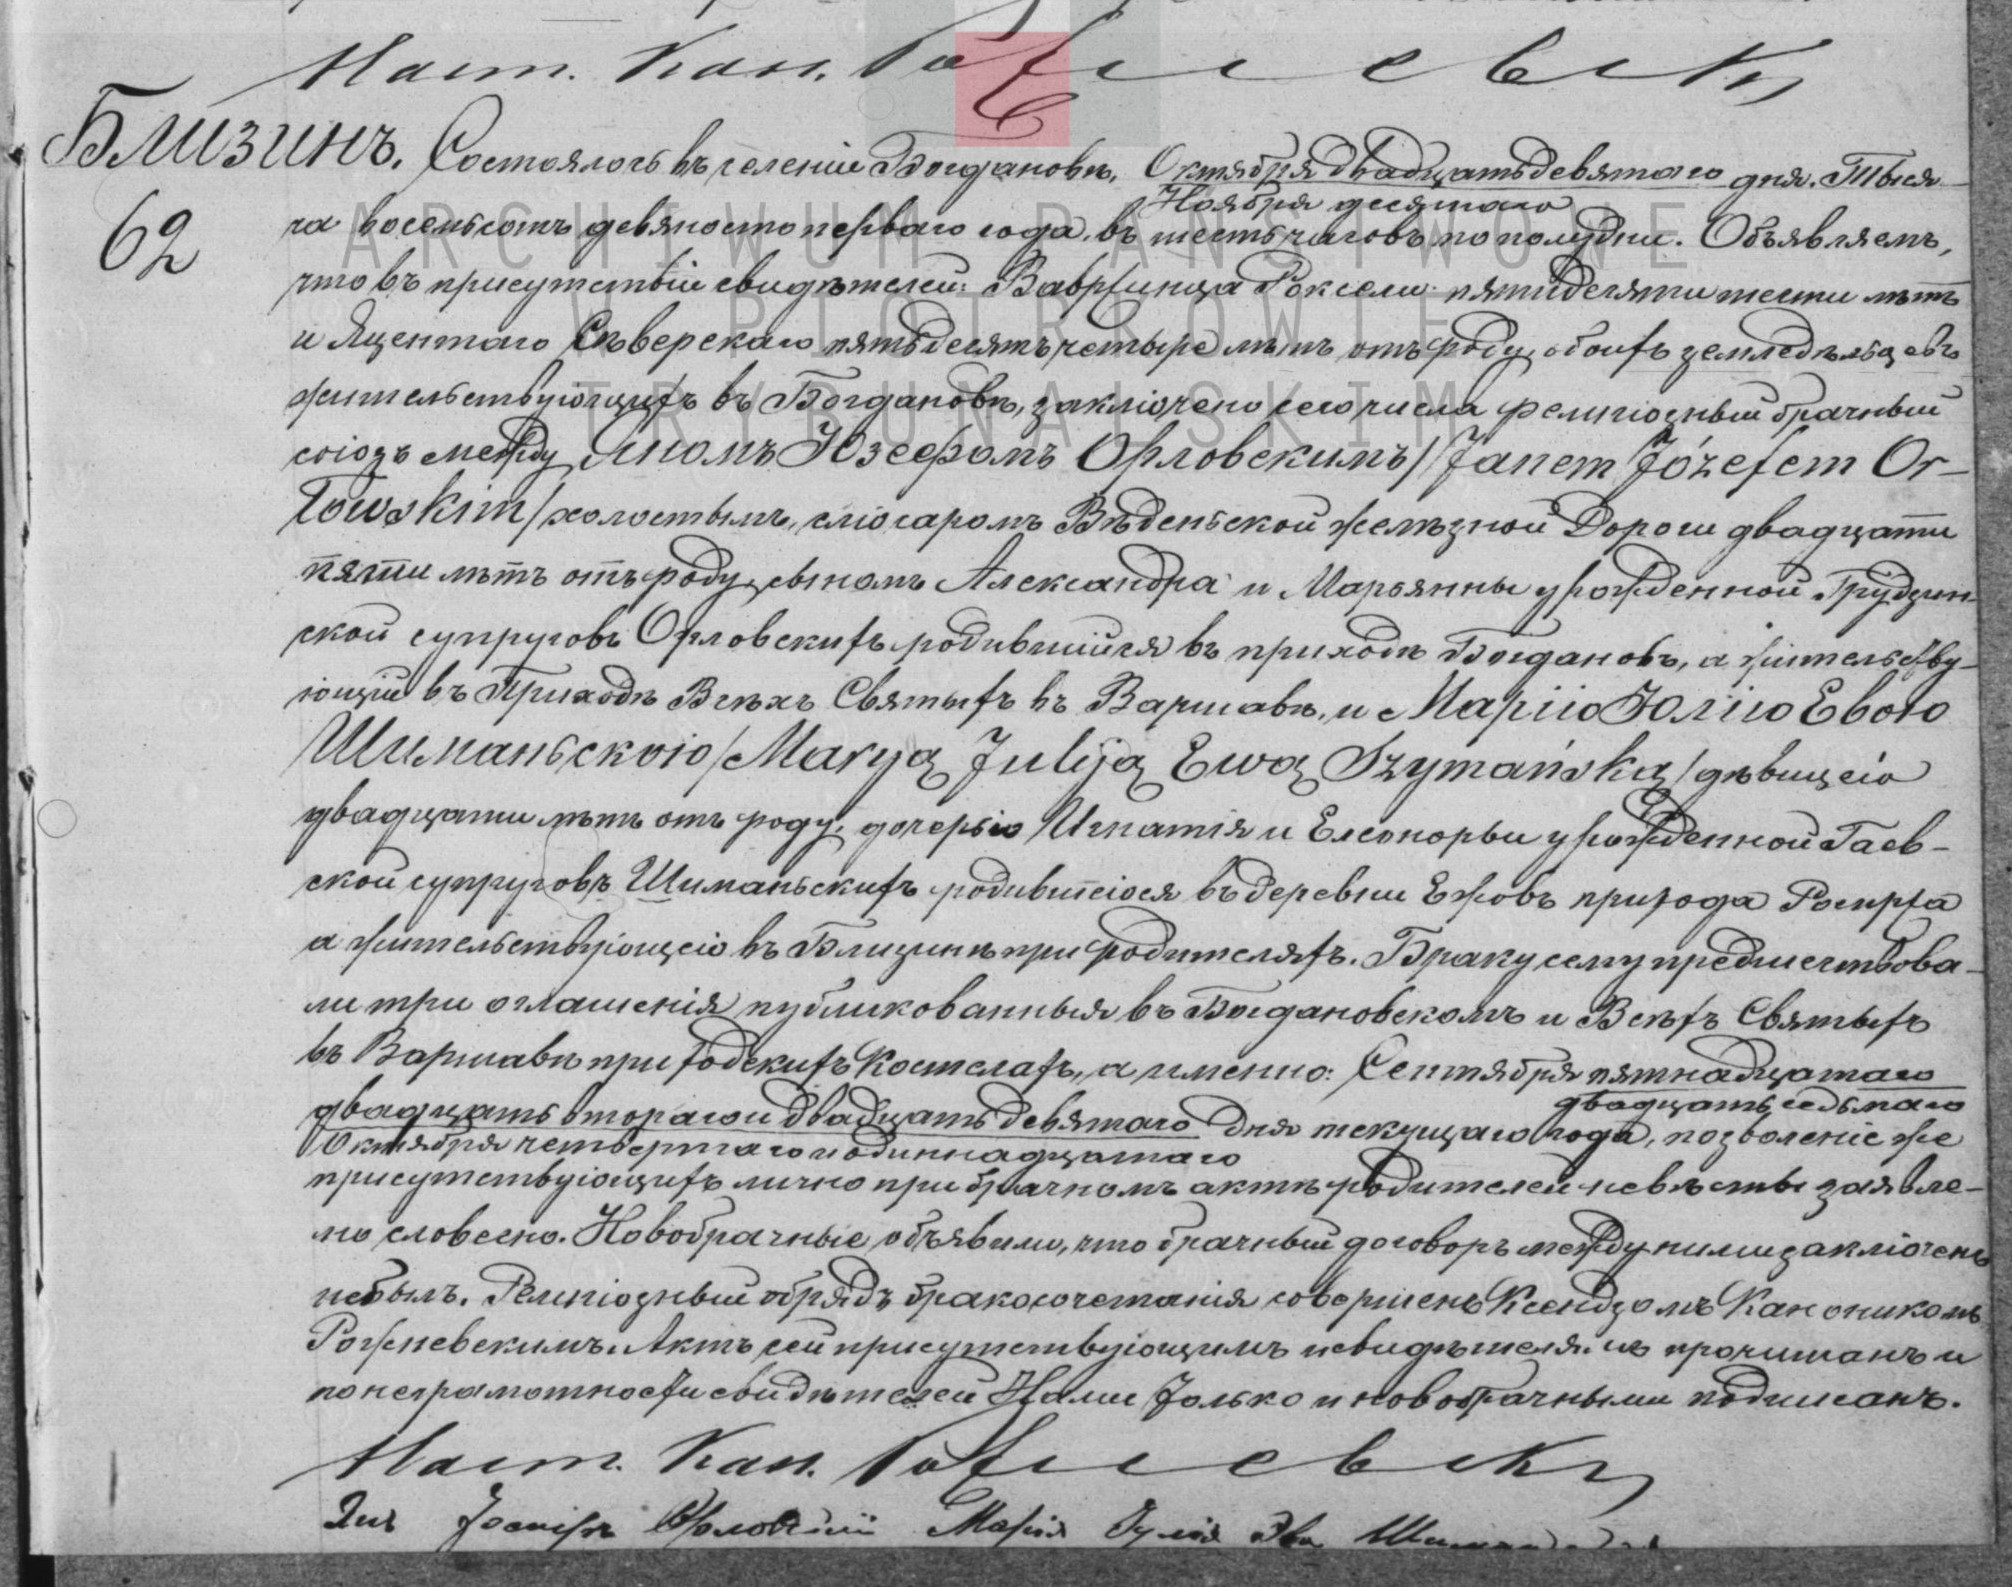 Наст. Кан. Рожневски
Близинъ. Состоялось въ селеніи Богдановѣ, Октября двадцать девятаго дня. Тыся-
Ноября десятаго
62
ча восемьсотъ девяносто перваго года, въ шесть часовъ по полудни. Объявляемъ,
что въ присутствіи свидѣтелей: Вавржинца Роксели пятидесяти шести лѣтъ
и Яцентаго Сѣверскаго пятьдесятъ четыре лѣтъ отъ роду, обоихъ земледѣльцевъ
жительствующихъ въ Богдановѣ, заключено сего числа религіозный брачный
союзъ между Яномъ Юзефомъ Орловскимъ /Janem Józefem Or-
łowskim/ холостымъ, слюсаромъ Вѣденьской желѣзной Дороги двадцати
пяти лѣтъ отъ роду, сыномъ Александра и Марьянны урожденной Грудзин-
ской супруговъ Орловскихъ родившійся въ приходѣ Богдановъ, а жительству-
ющій въ Приходѣ Всѣхъ Святыхъ въ Варшавѣ, и Марією Юлією Евою
Шиманьскою /Maryą Juliją Ewą Szymańską/ дѣвицею
двадцати лѣтъ отъ роду, дочерью Игнатія и Елеоноры урожденной Гаев-
ской супруговъ Шиманьскихъ родившеюся въ деревни Ежовъ прихода Роспржа
а жительствующею въ Близинѣ при родителяхъ. Браку сему предшествова-
ли три оглашенія публикованныя въ Богдановскомъ и Всѣхъ Святыхъ
въ Варшавѣ приходскихъ Костелахъ, а именно: Сентября пятнадцатаго
двадцать седьмаго
двадцать втораго и двадцать девятаго дня текущаго года, позволеніе же
Октября четвертаго и одиннадцатаго
присутствующихъ лично при брачномъ актѣ родителей невѣсты заявле-
но словесно. Новобрачные объявили, что брачный договоръ между ними заключенъ
небылъ. Религіозный обрядъ бракосочетанія совершенъ Ксендзомъ Каноникомъ
Рожневскимъ. Актъ сей присутствующимъ и свидѣтелямъ прочитанъ и
по неграмотности свидѣтелей Нами только и новобрачными подписанъ.
Наст. Кан. Рожневски
Янъ Іосифъ Орловскій Марія Іулія Ева Шиманьска